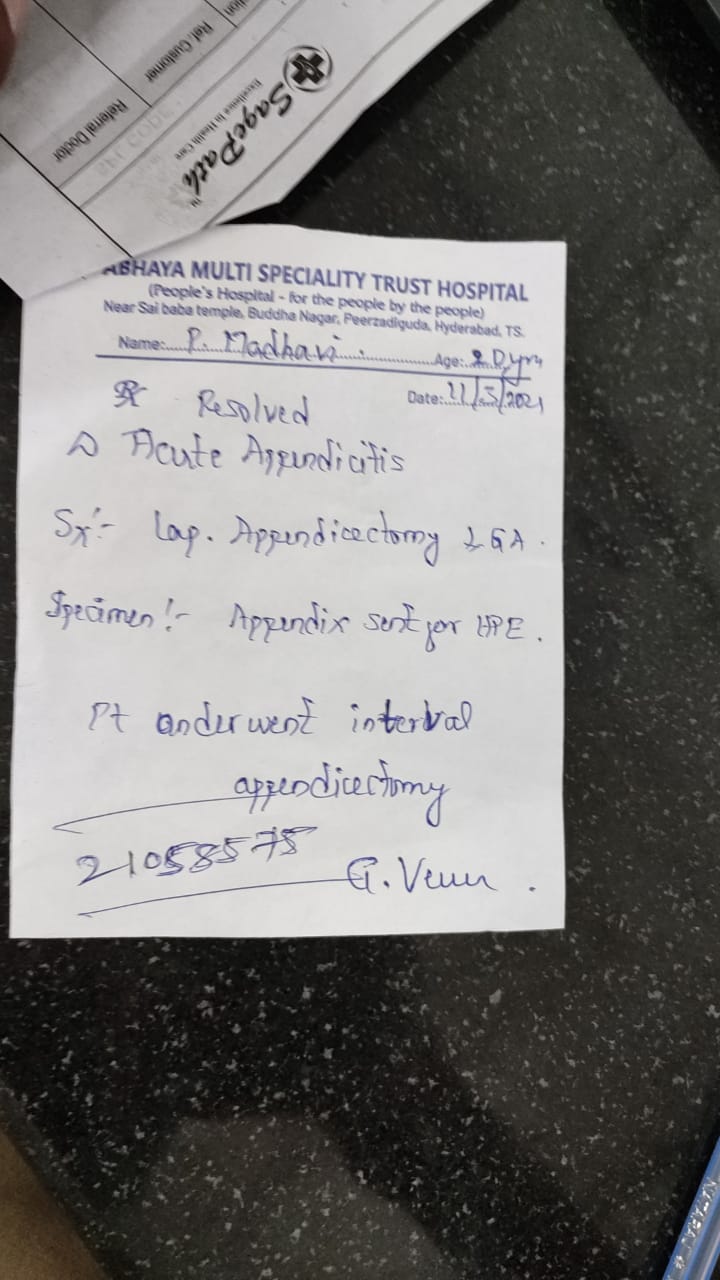 Ref. Customer
Referral Doctor
SagePath
Excellence In Health Care
ABHAYA MULTI SPECIALITY TRUST HOSPITAL
(People's Hospital - for the people by the people)
Near Sai baba temple, Buddha Nagar, Peerzadiguda, Hyderabad, TS.
Name:..... P. Madhavi ..... Age:..... yrs
Resolved
Date:..11/3/2021
Δ Acute Appendicitis
Sx:- Lap. Appendicectomy LGA.
Specimen:- Appendix sent for HPE.
Pt underwent interval
appendicectomy
21058575
G.